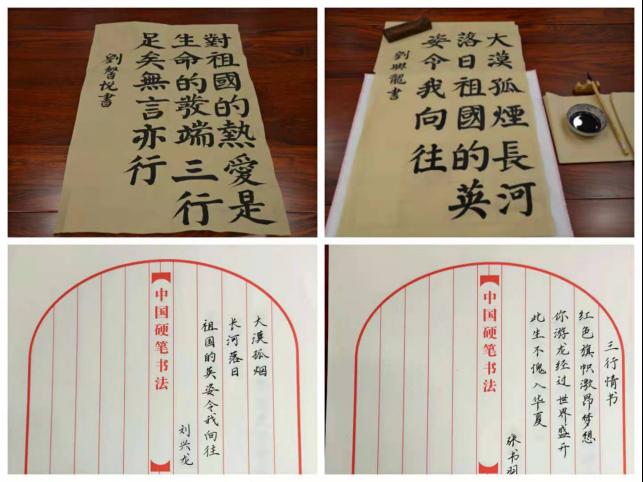 對祖國的熱愛是
生命的發端三行
足矣無言亦行
劉悅書
大漠孤煙長河
落日祖國的英
姿令我向往
劉興龍書
大漠孤烟
长河落日
祖国的英姿令我向往
刘兴龙
中国硬笔书法
三行情书
红色旗帜激昂梦想
你游龙经过世界盛开
此生不愧入华夏
张书
中国硬笔书法